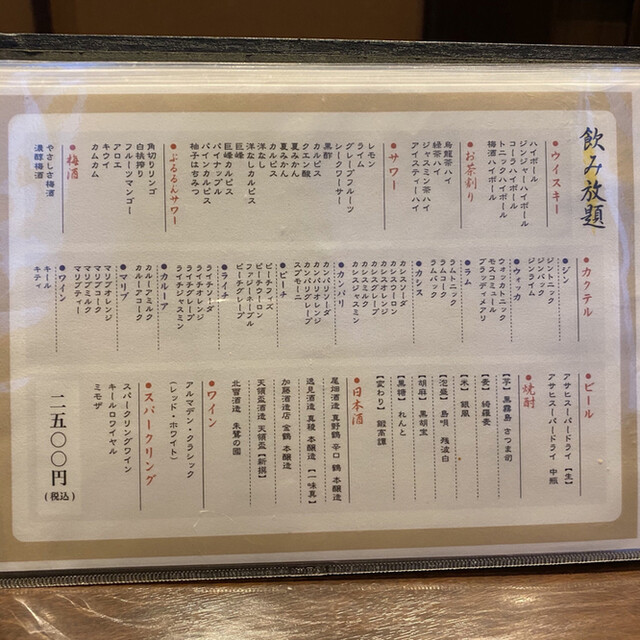 飲み放題
●ウイスキー
ハイボール
ジンジャーハイボール
コーラハイボール
トニックハイボール
梅酒ハイボール
●お茶割り
烏龍茶ハイ
緑茶ハイ
ジャスミン茶ハイ
アイスティーハイ
●サワー
レモン
ライム
グレープフルーツ
シークワーサー
黒酢
カルピス
クエン酸
夏みかん
夏みかんカルピス
洋なし
洋なしカルピス
巨峰
巨峰カルピス
パイナップル
パインカルピス
柚子はちみつ
●ぷるるんサワー
角切りリンゴ
白桃搾り
フルーツマンゴー
アロエ
キウイ
カムカム
●梅酒
やさしさ梅酒
濃醇梅酒
●カクテル
●ジン
ジントニック
ジンバック
ジンライム
●ウォッカ
ウォッカトニック
モスコミュール
ブラッディメアリ
●ラム
ラムトニック
ラムコーク
ラムバック
●カシス
カシスソーダ
カシスウーロン
カシスオレンジ
カシスグレープ
カシスミルク
カシスジャスミン
●カンパリ
カンパリソーダ
カンパリオレンジ
カンパリグレープ
スプモーニ
●ピーチ
ピーチフィズ
ピーチウーロン
ファジーネーブル
ピーチグレープ
●ライチ
ライチソーダ
ライチオレンジ
ライチグレープ
ライチジャスミン
●カルーア
カルーアミルク
カルーアコーク
●マリブ
マリブオレンジ
マリブコーク
マリブミルク
マリブティー
●ワイン
キール
キティ
●ビール
アサヒスーパードライ 【生】
アサヒスーパードライ 中瓶
●焼酎
【芋】 黒霧島 さつま司
【麦】 綾羅麦
【米】 銀嶺
【泡盛】 島唄 残波白
【胡麻】 黒胡宝
【黒糖】 れんと
【変わり】 鍛高譚
●日本酒
尾畑酒造 真野鶴 辛口 鶴 本醸造
逸見酒造 真稜 本醸造 【一味真】
加藤酒造店 金鶴 本醸造
天領盃酒造 天領盃 【新撰】
北雪酒造 朱鷺の國
●ワイン
アルマデン・クラシック
(レッド・ホワイト)
●スパークリング
スパークリングワイン
キールロワイヤル
ミモザ
二五〇〇円
(税込)